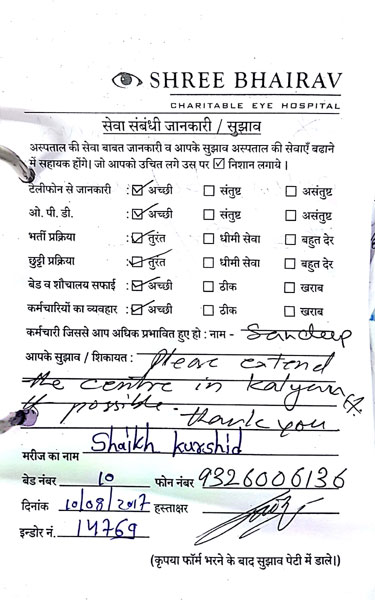 SHREE BHAIRAV
CHARITABLE EYE HOSPITAL
सेवा संबंधी जानकारी / सुझाव
अस्पताल की सेवा बाबत जानकारी व आपके सुझाव अस्पताल की सेवाएँ बढाने
में सहायक होंगे। जो आपको उचित लगे उस पर ☑ निशान लगाये।
टेलीफोन से जानकारी : ☑ अच्छी ☐ संतुष्ट ☐ असंतुष्ट
ओ. पी. डी. : ☑ अच्छी ☐ संतुष्ट ☐ असंतुष्ट
भर्ती प्रक्रिया : ☑ तुरंत ☐ धीमी सेवा ☐ बहुत देर
छुट्टी प्रक्रिया : ☑ तुरंत ☐ धीमी सेवा ☐ बहुत देर
बेड व शौचालय सफाई : ☑ अच्छी ☐ ठीक ☐ खराब
कर्मचारियों का व्यवहार : ☑ अच्छी ☐ ठीक ☐ खराब
कर्मचारी जिससे आप अधिक प्रभावित हुए हो : नाम - Sandeep
आपके सुझाव / शिकायत : Please extend
the centre in Kalyan
if possible. thank you
मरीज का नाम Shaikh kurshid
बेड नंबर 10 फोन नंबर 9326006136
दिनांक 10/08/2017 हस्ताक्षर
इन्डोर नं. 14769
(कृपया फॉर्म भरने के बाद सुझाव पेटी में डाले।)